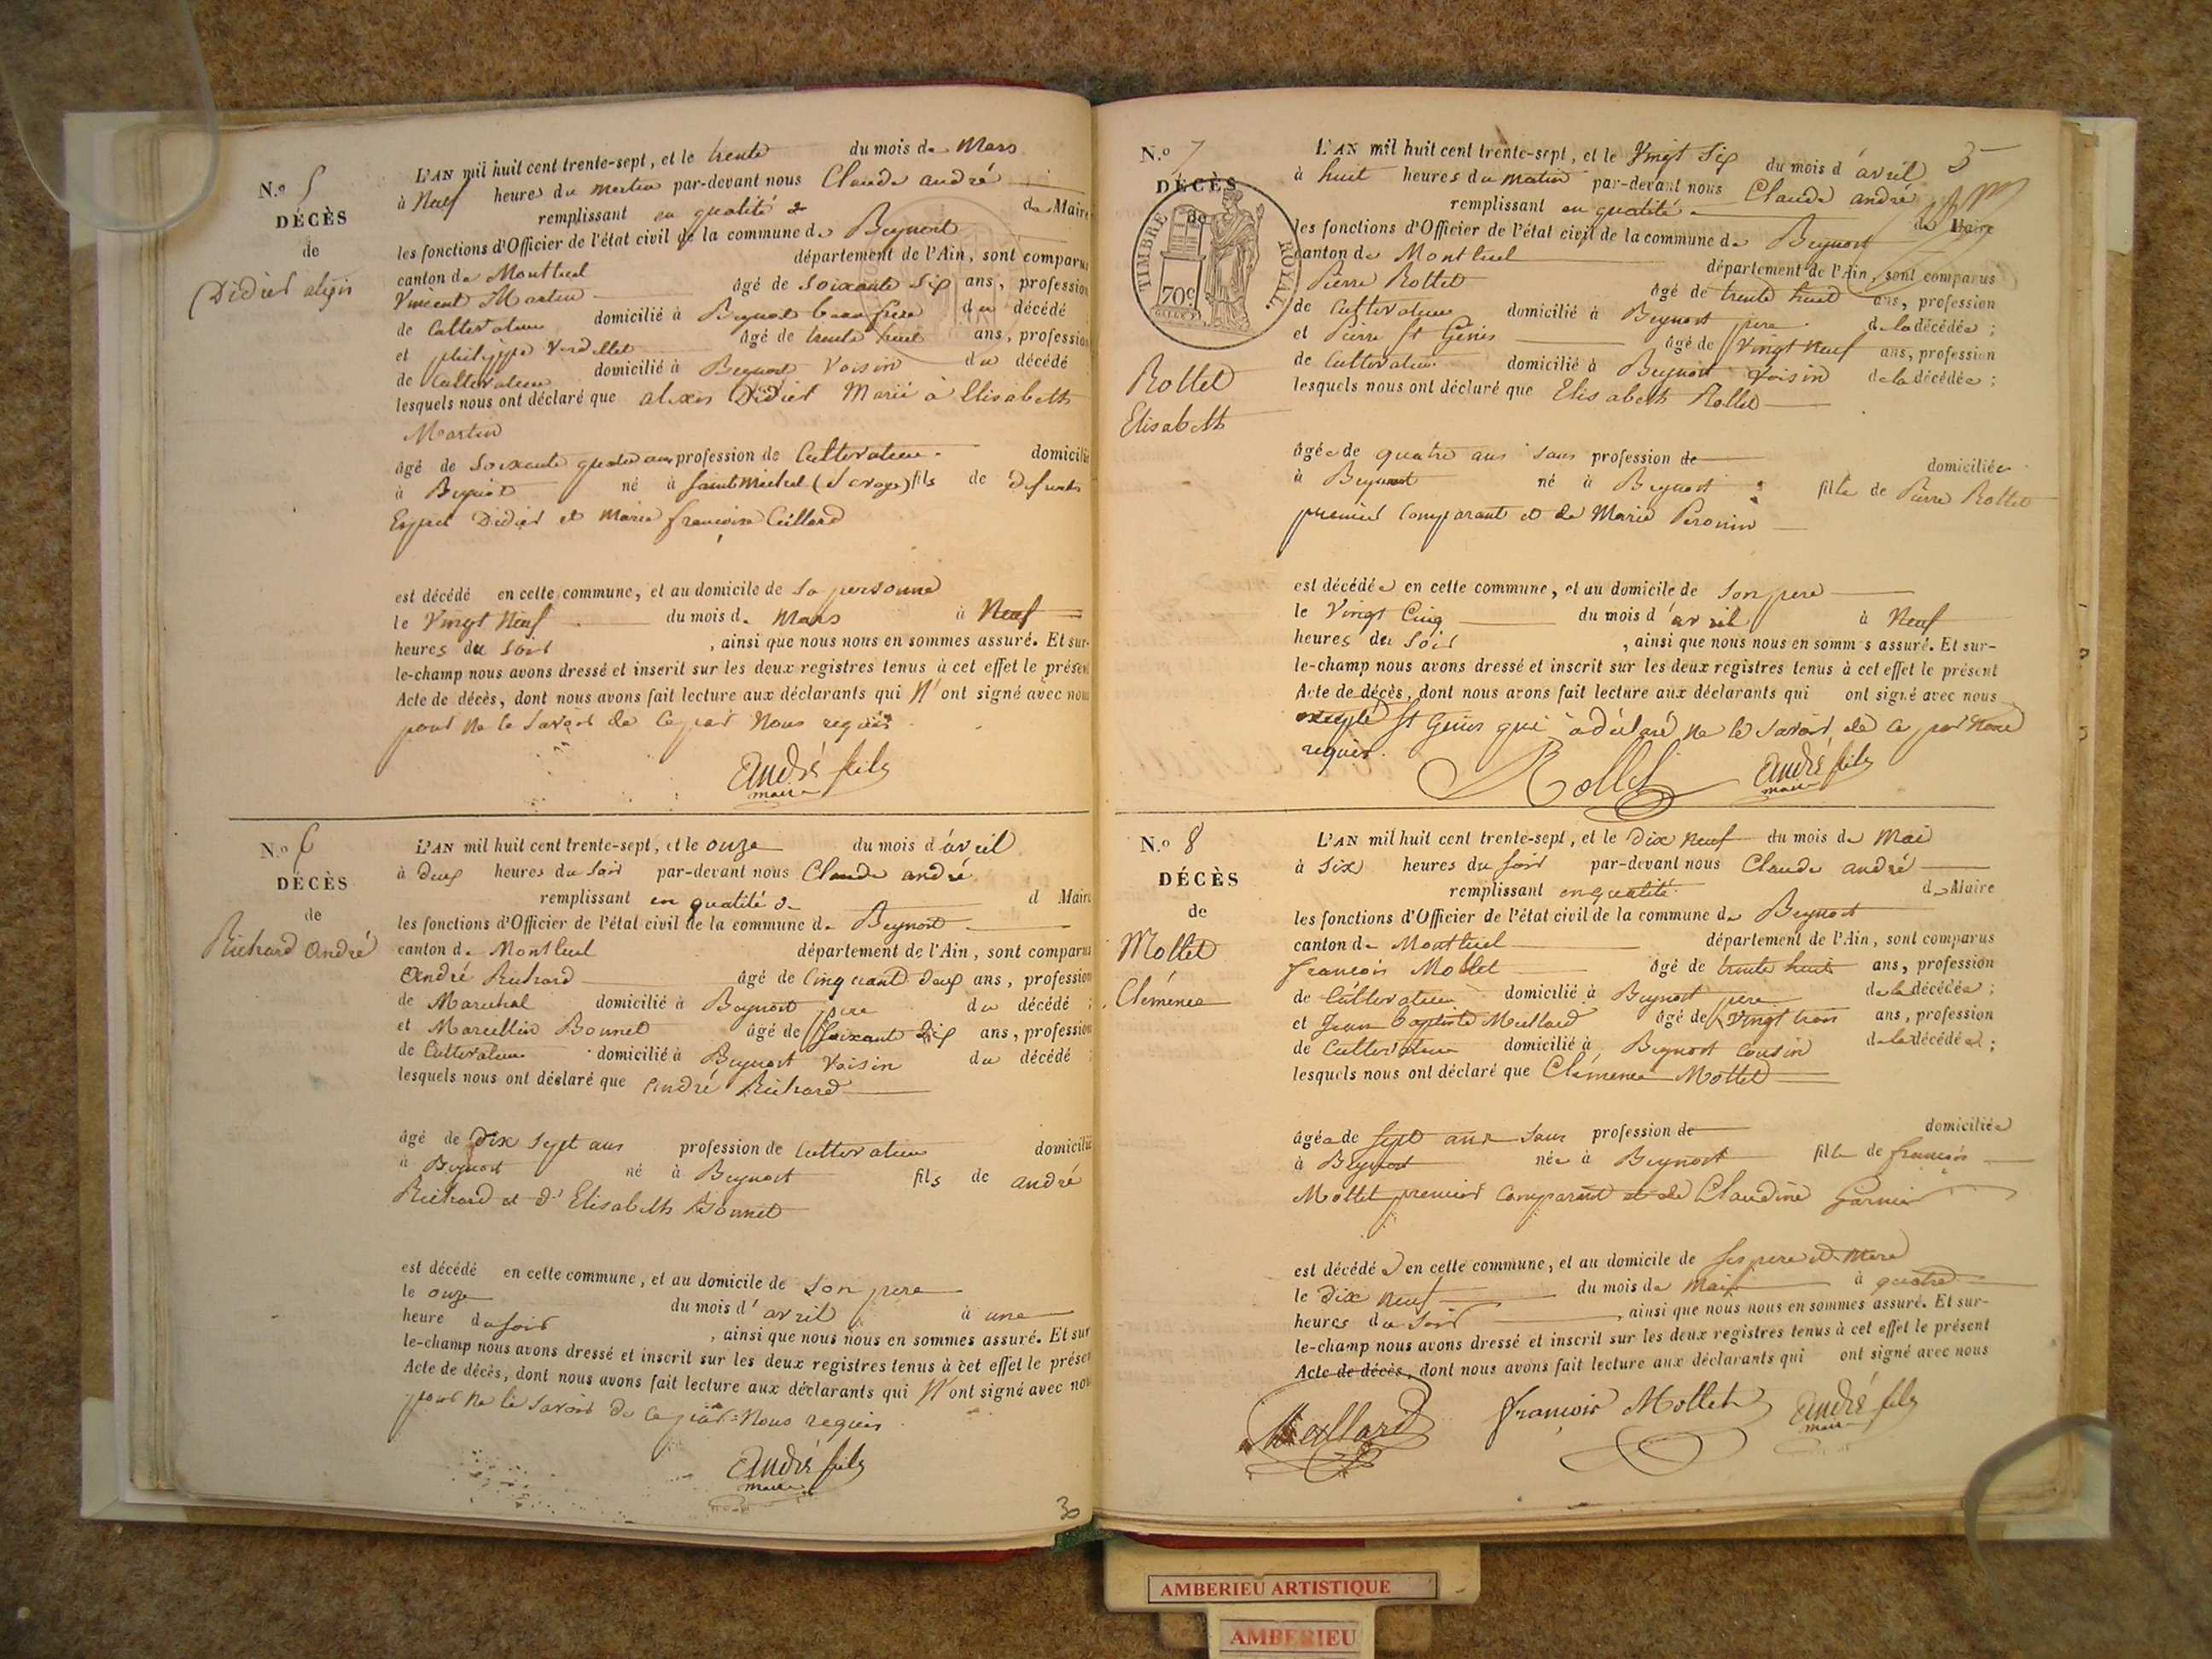 N.º 5
DÉCÈS
de
Didier alexis
L'AN mil huit cent trente-sept, et le trente du mois de Mars
à Neuf heures du matin par-devant nous Claude andré
remplissant en qualité de Maire
les fonctions d'Officier de l'état civil de la commune de Beynost
canton de Montluel département de l'Ain, sont comparus
Vincent Martin âgé de soixante six ans, profession
de Cultivateur domicilié à Beynost beau frere du décédé
et philippe Verdellet âgé de trente huit ans, profession
de Cultivateur domicilié à Beynost Voisin du décédé
lesquels nous ont déclaré que alexis Didier Marié à Elisabeth
Martin
âgé de soixante quatre ans profession de Cultivateur domicilié
à Beynost né à Saint Michel (Savoye) fils de defunts
Didier et Marie françoise
est décédé en cette commune, et au domicile de sa personne
le Vingt Neuf du mois de Mars à Neuf
heures du soir, ainsi que nous nous en sommes assuré. Et sur-
le-champ nous avons dressé et inscrit sur les deux registres tenus à cet effet le présent
Acte de décès, dont nous avons fait lecture aux déclarants qui N'ont signé avec nous
pour ne le savoir de ce par Nous requis
andré fils
maire
N.º 6
DÉCÈS
de
Richard andré
L'AN mil huit cent trente-sept, et le onze du mois d'avril
à deux heures du soir par-devant nous Claude andré
remplissant en qualité de d Maire
les fonctions d'Officier de l'état civil de la commune de Beynost
canton de Montluel département de l'Ain, sont comparus
andré Richard âgé de cinquant deux ans, profession
de Marechal domicilié à Beynost pere du décédé ;
et Marcellin Bonnet âgé de soixant dix ans, profession
de Cultivateur domicilié à Beynost Voisin du décédé ;
lesquels nous ont déclaré que andré Richard
âgé de dix sept ans profession de Cultivateur domicilié
à Beynost né à Beynost fils de andré
Richard et d'Elisabeth Bonnet
est décédé en cette commune, et au domicile de son pere
le onze du mois d'avril à une
heure du soir, ainsi que nous nous en sommes assuré. Et sur
le-champ nous avons dressé et inscrit sur les deux registres tenus à cet effet le présent
Acte de décès, dont nous avons fait lecture aux déclarants qui N'ont signé avec nous
pour ne le savoir de ce par Nous requis
andré fils
maire
30
N.º 7
DÉCÈS
de
TIMBRE ROYAL
70c
Rollet
Elisabeth
5
L'AN mil huit cent trente-sept, et le Vingt six du mois d'avril
à huit heures du matin par-devant nous Claude andré
remplissant en qualité de Maire
les fonctions d'Officier de l'état civil de la commune de Beynost
canton de Montluel département de l'Ain, sont comparus
Pierre Rollet âgé de trente huit ans, profession
de Cultivateur domicilié à Beynost pere de la décédée ;
et Pierre St Genis âgé de Vingt Neuf ans, profession
de Cultivateur domicilié à Beynost Voisin de la décédée ;
lesquels nous ont déclaré que Elisabeth Rollet
âgée de quatre ans sans profession de domiciliée
à Beynost né à Beynost fille de Pierre Rollet
premier comparant et de Marie Peronin
est décédée en cette commune, et au domicile de son pere
le Vingt Cinq du mois d'avril à Neuf
heures du soir, ainsi que nous nous en sommes assuré. Et sur-
le-champ nous avons dressé et inscrit sur les deux registres tenus à cet effet le présent
Acte de décès, dont nous avons fait lecture aux déclarants qui ont signé avec nous
excepté St Genis qui a déclaré ne le savoir de ce par Nous
requis.
Rollet
andré fils
maire
N.º 8
DÉCÈS
de
Mollet
Clémence
L'AN mil huit cent trente-sept, et le dix neuf du mois de Mai
à six heures du soir par-devant nous Claude andré
remplissant en qualité de Maire
les fonctions d'Officier de l'état civil de la commune de Beynost
canton de Montluel département de l'Ain, sont comparus
françois Mollet âgé de trente huit ans, profession
de Cultivateur domicilié à Beynost pere de la décédée ;
et Jean Baptiste Meillard âgé de Vingt trois ans, profession
de Cultivateur domicilié à Beynost cousin de la décédée ;
lesquels nous ont déclaré que Clémence Mollet
âgée de sept ans sans profession de domiciliée
à Beynost née à Beynost fille de françois
Mollet premier comparant et de Claudine Garnier
est décédée en cette commune, et au domicile de ses pere et mere
le dix neuf du mois de Mai à quatre
heures du soir, ainsi que nous nous en sommes assuré. Et sur-
le-champ nous avons dressé et inscrit sur les deux registres tenus à cet effet le présent
Acte de décès, dont nous avons fait lecture aux déclarants qui ont signé avec nous
Meillard
françois Mollet
andré fils
maire
AMBERIEU ARTISTIQUE
AMBERIEU